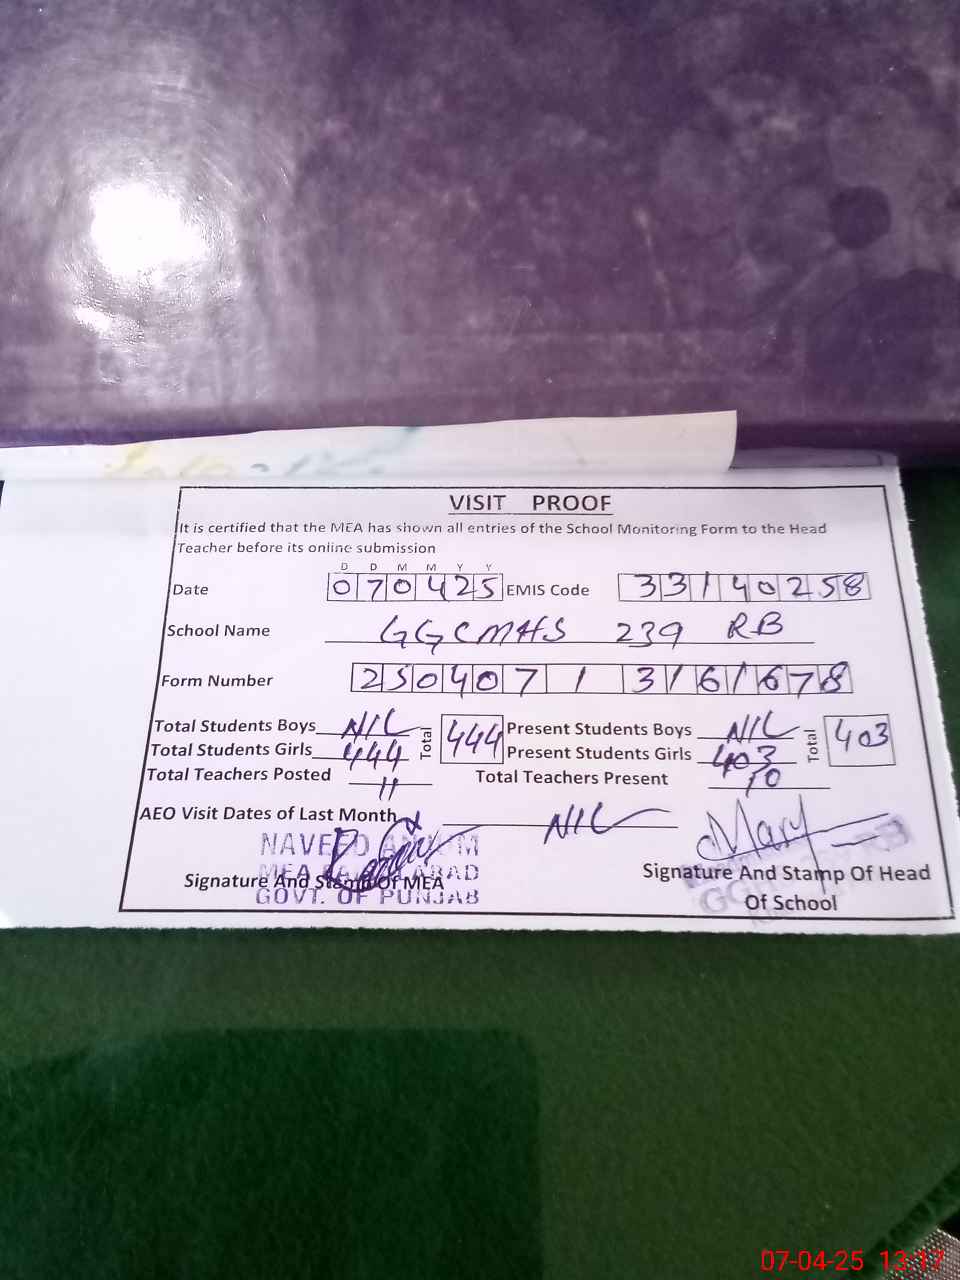 VISIT PROOF
It is certified that the MEA has shown all entries of the School Monitoring Form to the Head
Teacher before its online submission
D D M M Y Y
Date 070425 EMIS Code 33140258
School Name GGCMHS 239 RB
Form Number 250407 1 3161678
Total Students Boys NIL Total 444 Present Students Boys NIL Total 403
Total Students Girls 444 Present Students Girls 403
Total Teachers Posted 11 Total Teachers Present 10
AEO Visit Dates of Last Month NIL
NAVEED
MEA
Signature And Stamp Of MEA
GOVT. OF PUNJAB
Mary
Signature And Stamp Of Head
Of School
07-04-25 13:17